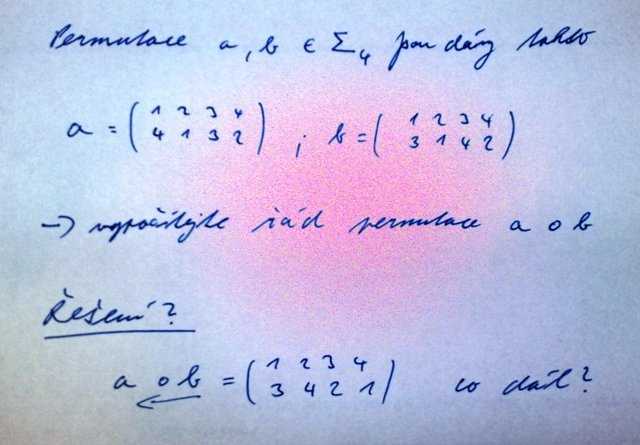 Permutace a, b ∈ Σ₄ jsou dány takto
a = ( 1 2 3 4 ) ; b = ( 1 2 3 4 )
4 1 3 2 3 1 4 2
→) vypočítejte řád permutace a ∘ b
Řešení?
a ∘ b = ( 1 2 3 4 ) co dál?
3 4 2 1